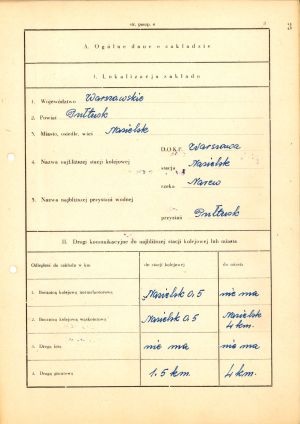 str. parzp. 6
3
A. Ogólne dane o zakładzie
1. Lokalizacja zakładu
1. Województwo Warszawskie
2. Powiat Pułtusk
3. Miasto, osiedle, wieś Nasielsk
D.O.K.P. Warszawa
4. Nazwa najbliższej stacji kolejowej stacja Nasielsk
rzeka Narew
5. Nazwa najbliższej przystani wodnej
przystań Pułtusk
II. Drogi komunikacyjne do najbliższej stacji kolejowej lub miasta
Odległość do zakładu w km do stacji kolejowej do miasta
1. Bocznicą kolejową normalnotorową Nasielsk 0,5 nie ma
2. Bocznicą kolejową wąskotorową Nasielsk 0,5 Nasielsk 4 km.
3. Drogą bitą nie ma nie ma
4. Drogą gruntową 1,5 km. 4 km.